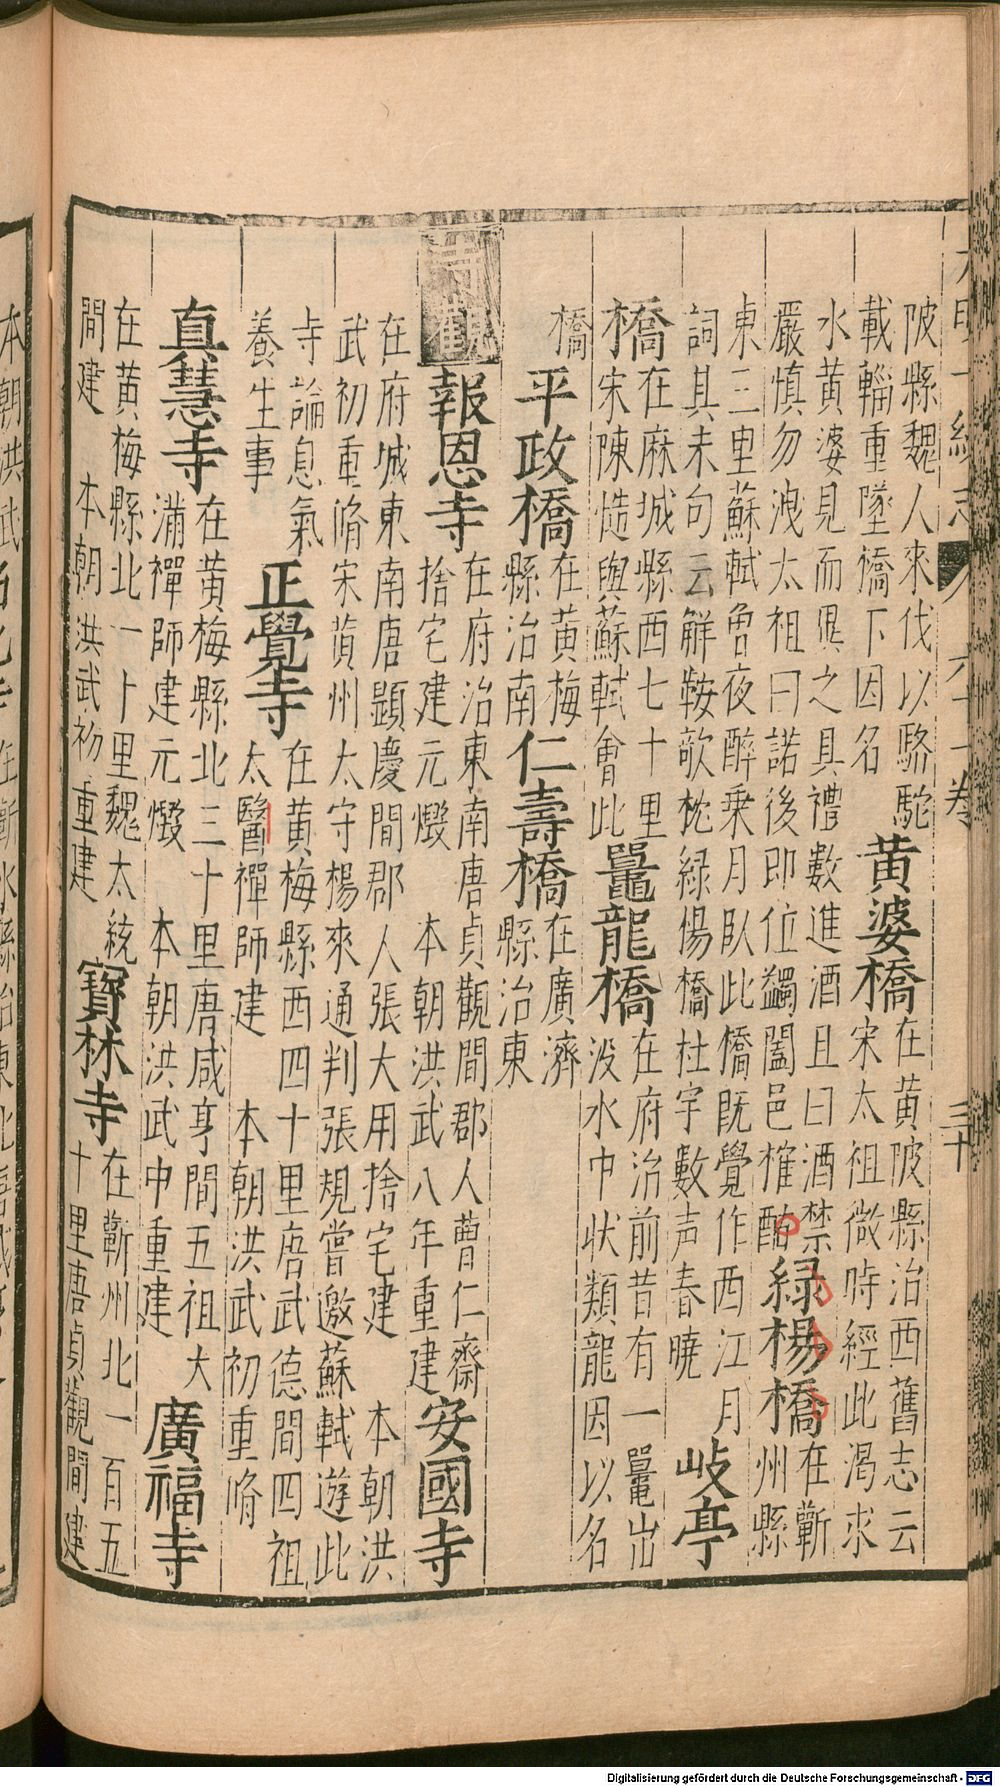 大明一統志 六十一卷 三十
陂縣魏人來伐以駱駝
載輜重墜橋下因名
黃婆橋
在黃陂縣治西舊志云
宋太祖微時經此渴求
水黃婆見而異之具禮數進酒且曰酒禁
嚴慎勿洩太祖曰諾後即位蠲闔邑榷酤
緑楊橋
在蘄
州縣
東三里蘇軾曽夜醉乗月臥此橋旣覺作西江月
詞其末句云觧鞍欹枕緑楊橋杜宇數声春曉
岐亭
橋
在麻城縣西七十里
宋陳慥與蘇軾會此
鼉龍橋
在府治前昔有一鼉出
没水中状類龍因以名
橋
平政橋
在黃梅
縣治南
仁壽橋
在廣濟
縣治東
寺觀
報恩寺
在府治東南唐貞觀間郡人曹仁齋
捨宅建元燬 本朝洪武八年重建
安國寺
在府城東南唐顕慶間郡人張大用捨宅建 本朝洪
武初重脩宋黃州太守楊來通判張規嘗邀蘇軾遊此
寺論息氣
養生事
正覺寺
在黃梅縣西四十里唐武德間四祖
太醫禪師建 本朝洪武初重脩
真慧寺
在黃梅縣北三十里唐咸亨間五祖大
滿禪師建元燬 本朝洪武中重建
廣福寺
在黃梅縣北一十里魏太統
間建 本朝洪武初重建
寶林寺
在蘄州北一百五
十里唐貞觀間建
Digitalisierung gefördert durch die Deutsche Forschungsgemeinschaft - DFG